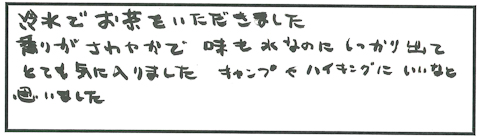 冷水でお茶をいただきました
香りがさわやかで 味も水なのにしっかり出て
とても気に入りました キャンプやハイキングにいいなと
思いました